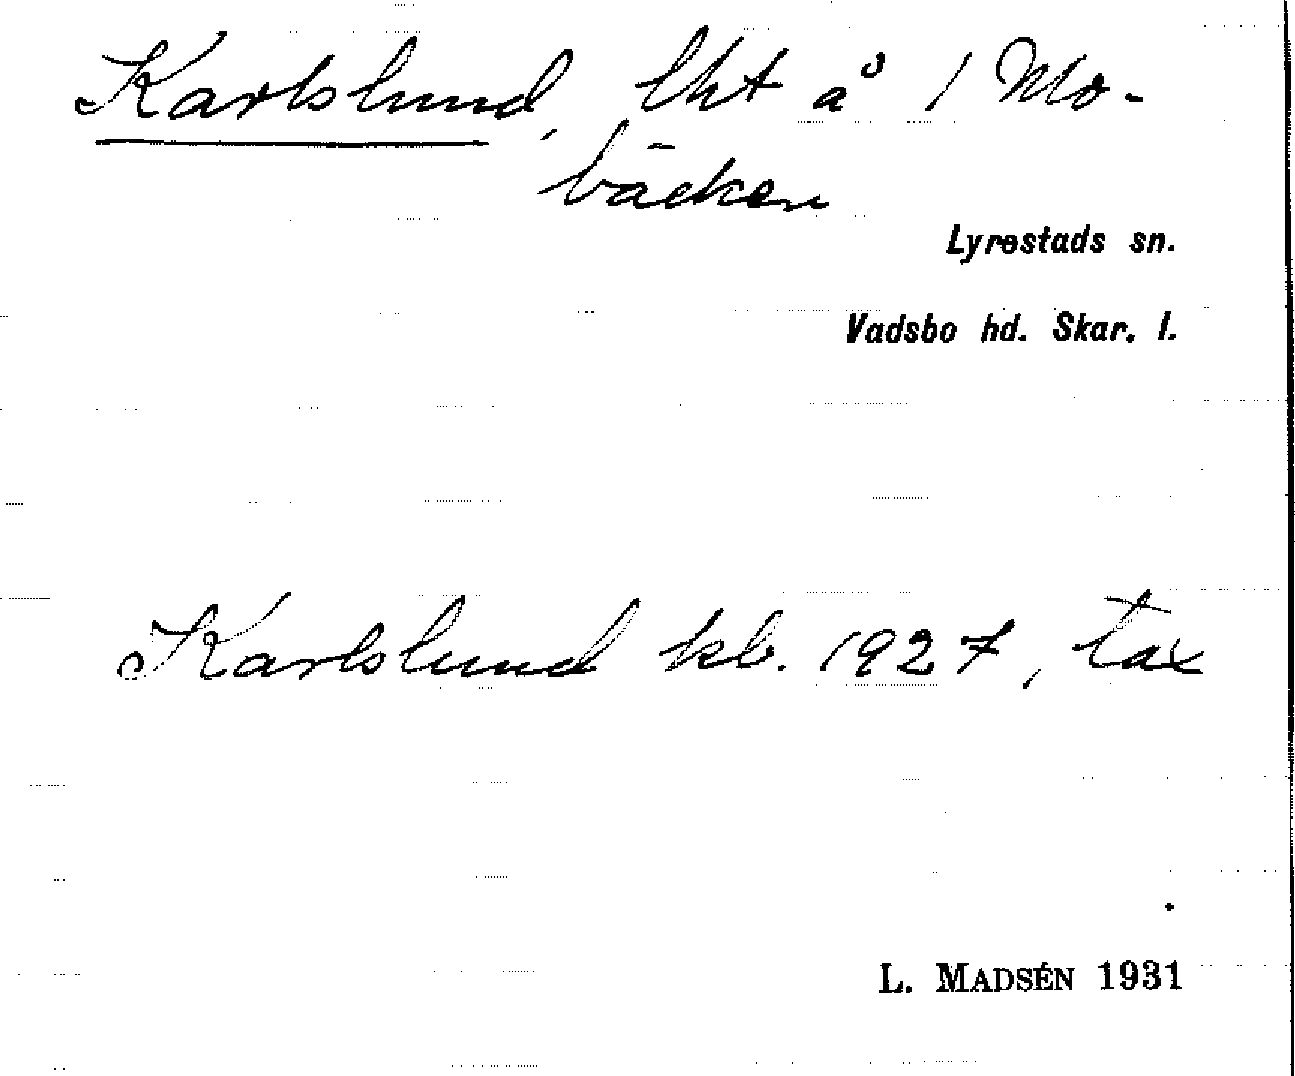 Karlslund, lht å 1 Mo-
bäcken
Lyrestads sn.
Vadsbo hd. Skar. l.
Karlslund kb. 1927, tax
L. MADSÉN 1931